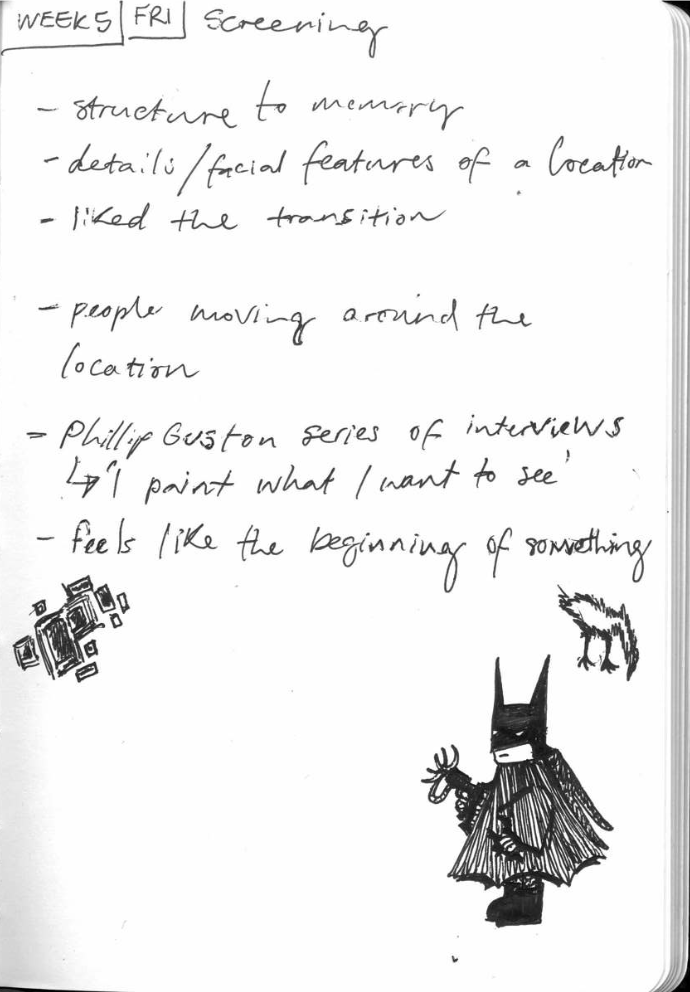 WEEK 5 FRI Screening
- structure to memory
- details/facial features of a location
- liked the transition
- people moving around the
location
- Phillip Guston series of interviews
↳ "I paint what I want to see'
- feels like the beginning of something